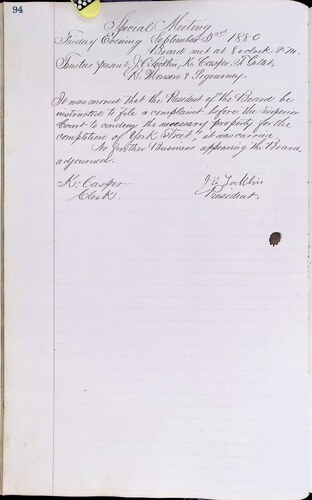 94
Special Meeting
Friday Evening September 3rd 1880
Board met at 8 oclock P.M.
Trustees present, J. E. Locklin, K. Casper, F. Talbt,
K. Monson & Sigourney.
It was moved that the President of the Board be
instructed to file a complaint before the Superior
Court to condem the necessary property for the
completion of York Street, it was carried.
No further Business appearing the Board
adjourned.
K. Casper J E Locklin
Clerk. President.